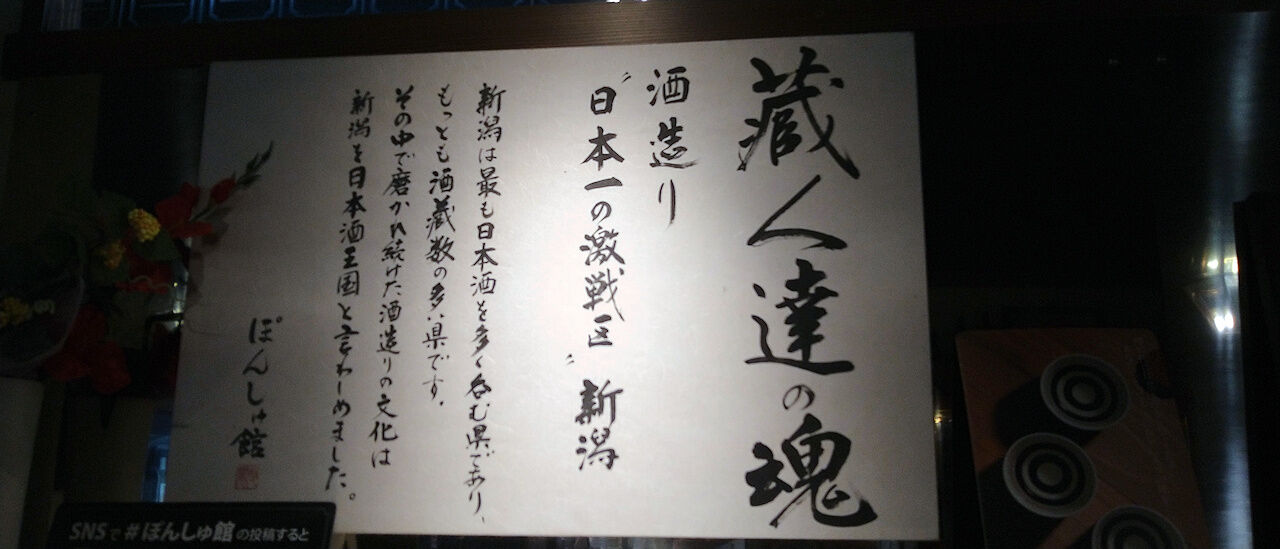 蔵人達の魂
酒造り
〝日本一の激戦区〟新潟
新潟は最も日本酒を多く呑む県であり、
もっとも酒蔵数の多い県です。
その中で磨かれ続けた酒造りの文化は
新潟を日本酒王国と言わしめました。
ぽんしゅ館
SNSで#ぽんしゅ館の投稿すると